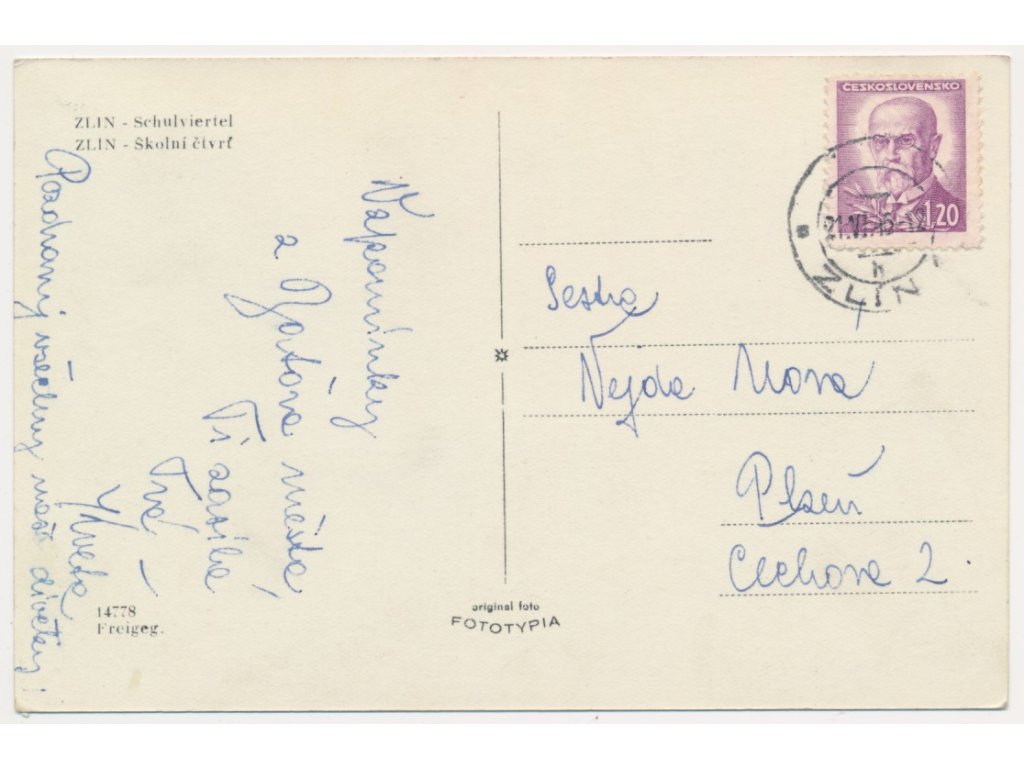 ZLIN - Schulviertel
ZLÍN - Školní čtvrť
Vzpomínky
z Baťova města
Ti zasílá
Tvá
Květa
Pozdravuj všechny naše divenky!
14778
Freigeg.
original foto
FOTOTYPIA
ČESKOSLOVENSKO
1,20
ZLÍN
Sestra
Nejda
Plzeň
Čechova 2.